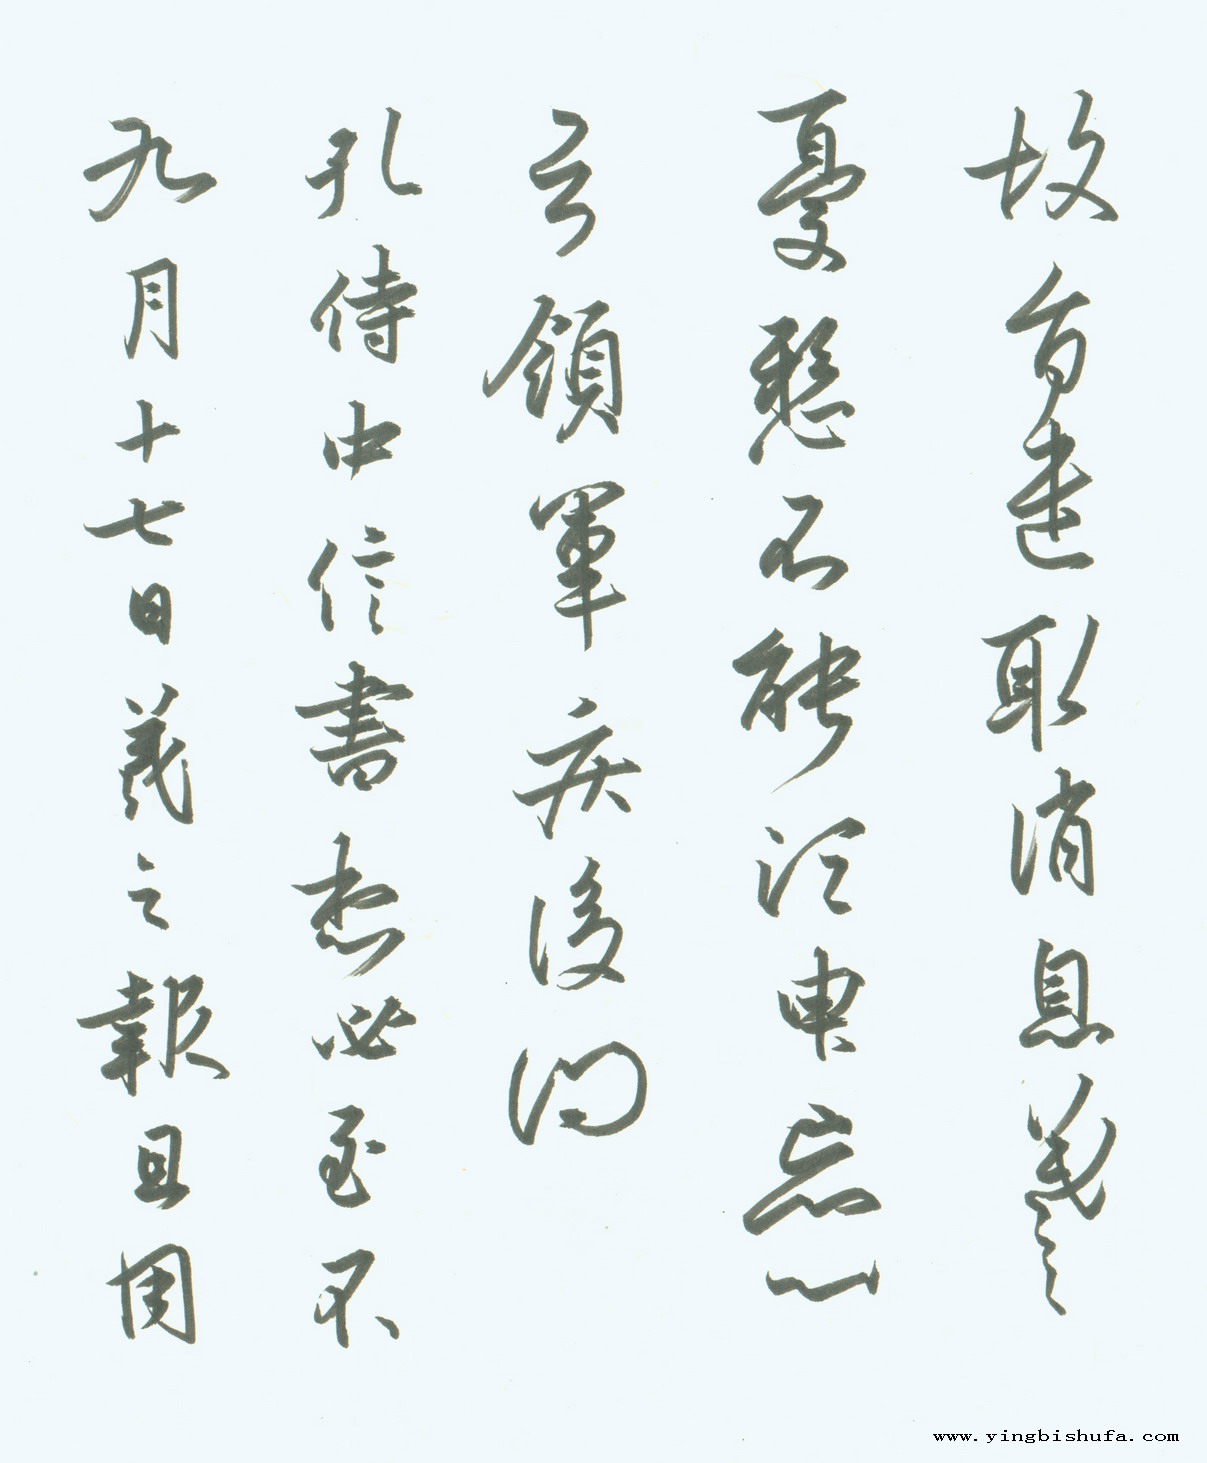 九月十七日羲之報且因
孔侍中信書想必至不
知領軍疾後問
憂懸不能須臾忘心
故旨遣取消息羲之
www.yingbishufa.com